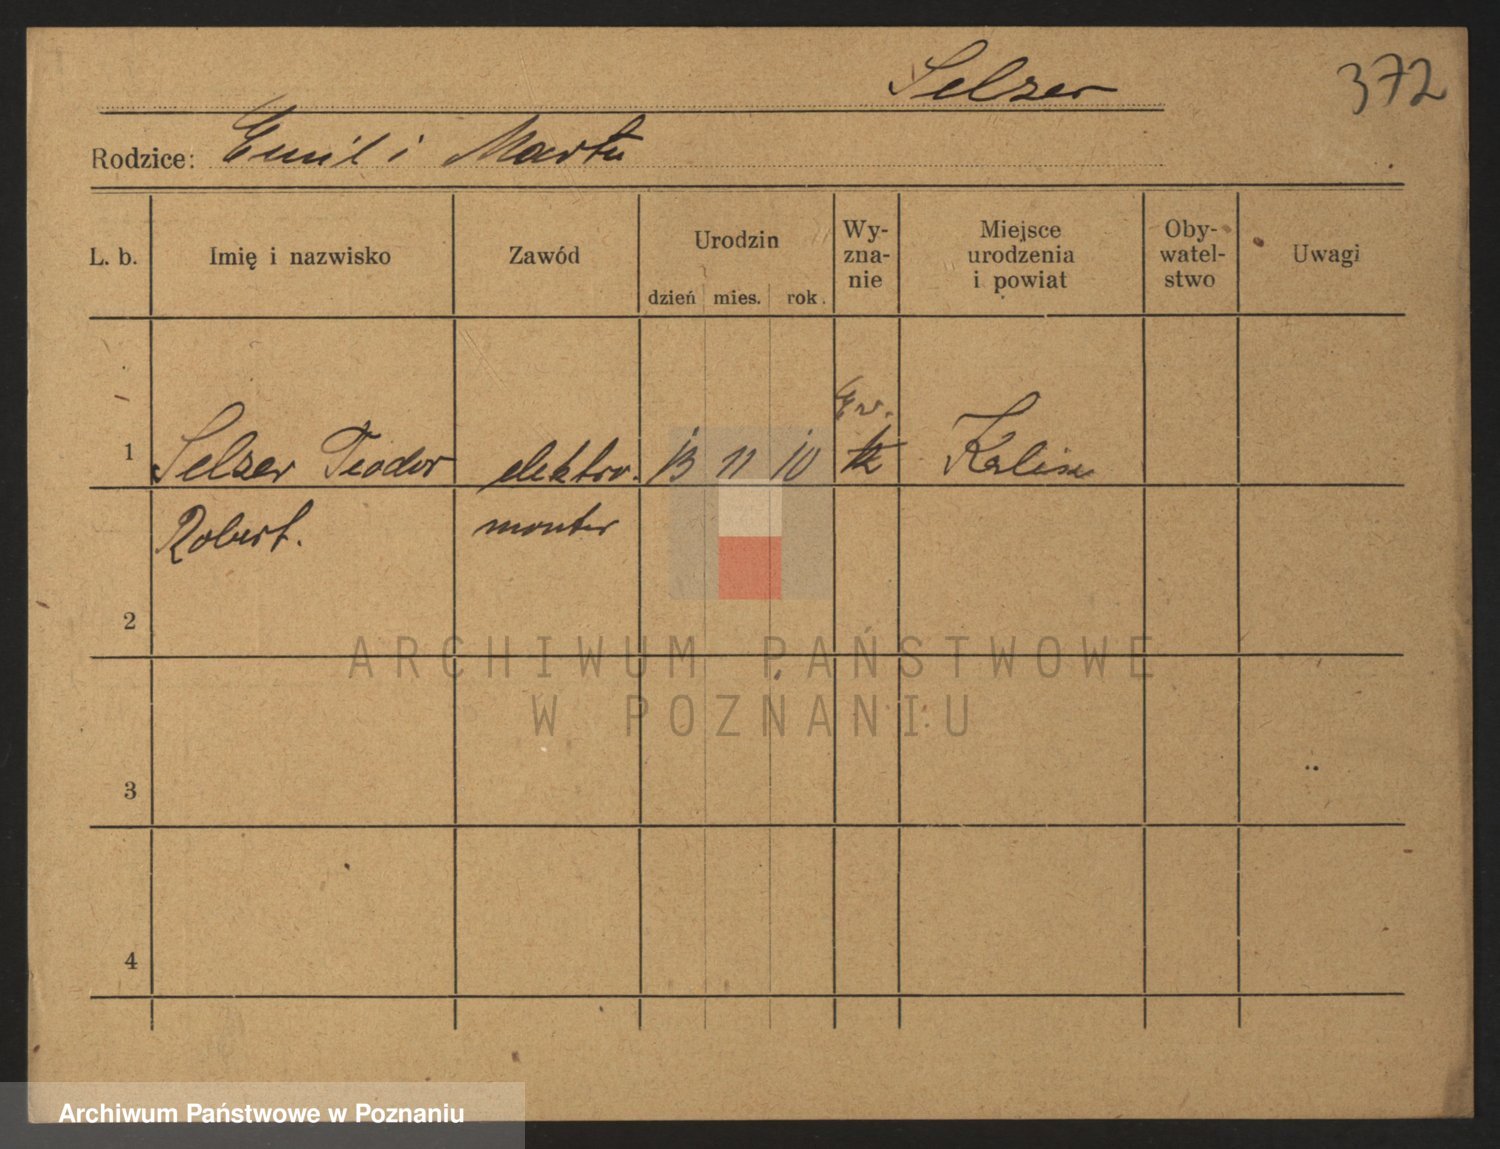 Selzer
372
Rodzice: Emil i Marta
L. b.
Imię i nazwisko
Zawód
Urodzin
dzień mies. rok.
Wy-
zna-
nie
Miejsce
urodzenia
i powiat
Oby-
watel-
stwo
Uwagi
Ew.
1 Selzer Teodor elektro. 13 11 10 Kalisz
Robert. monter
2
3
4
ARCHIWUM PAŃSTWOWE
W POZNANIU
Archiwum Państwowe w Poznaniu